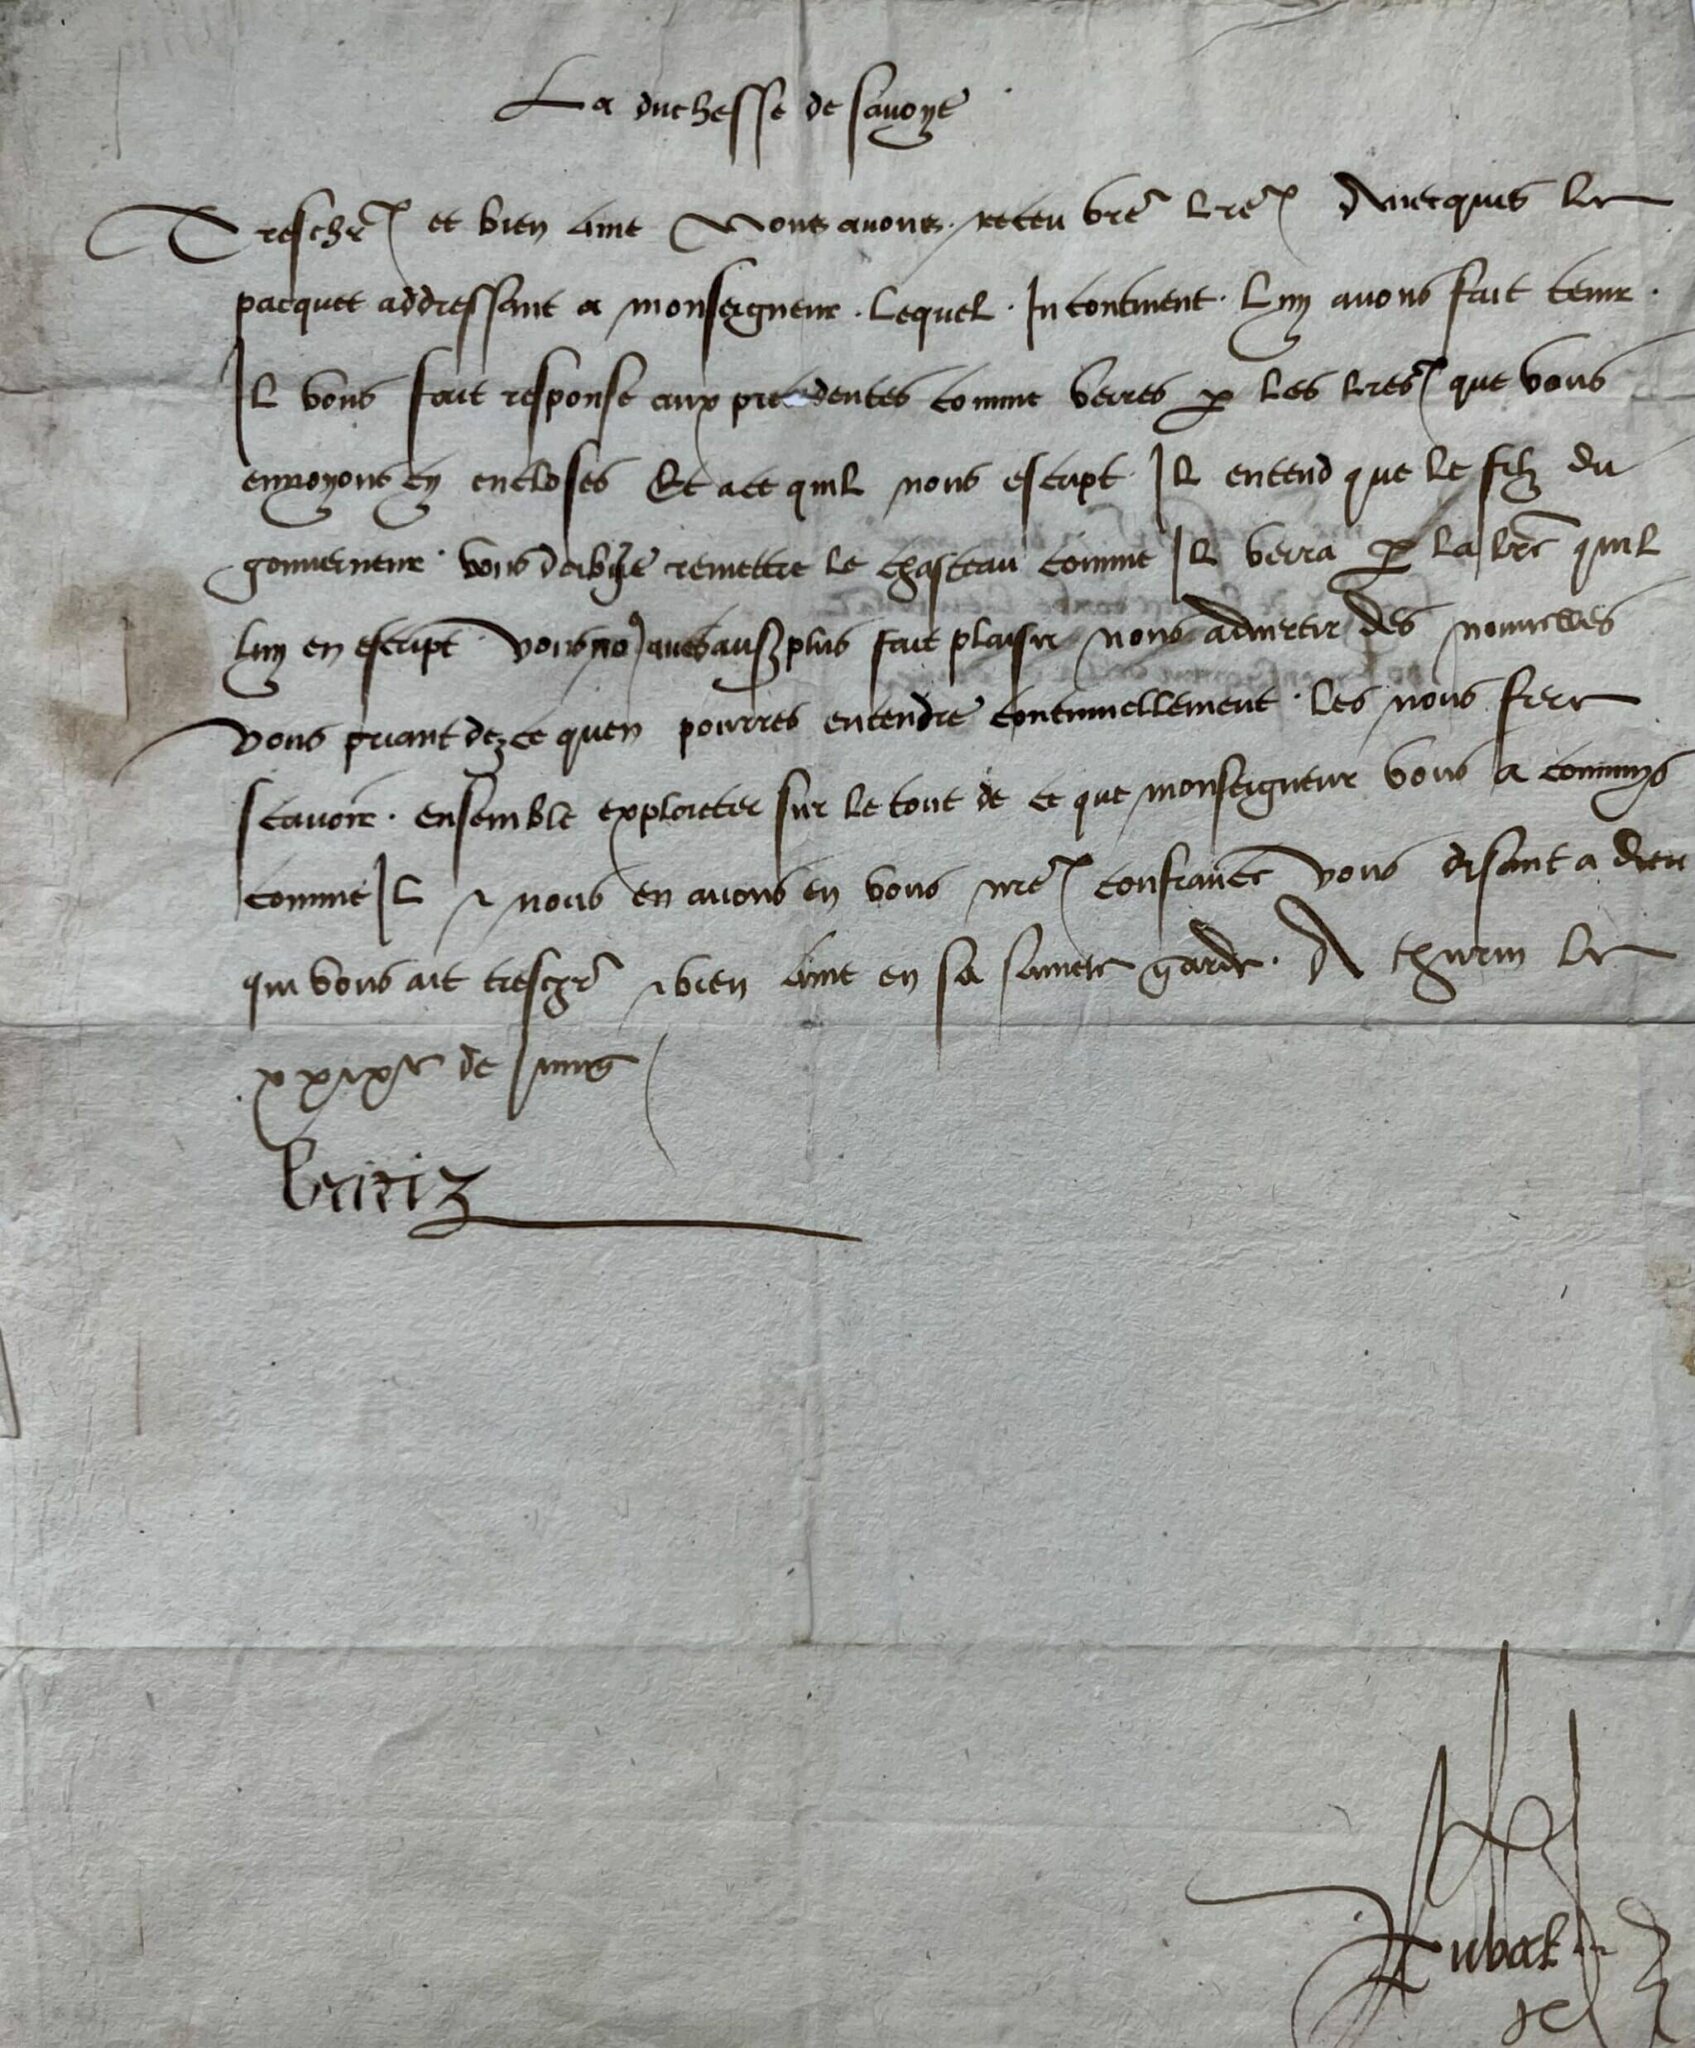 La duchesse de Savoye
Treschr et bien ame Nous avons receu vre lre Auecques le
pacquet addressant a monseigneur . Lequel . Incontinent . luy auons fait tenir .
Il vous fait response aux precedentes comme verres p les lres que vous
enuoyons cy encloses Et a ce quil nous escript Il entend que le filz du
gouuerneur . vous remettre le chasteau comme Il verra p la lre quil
luy en escript vous aues plus fait plaisir nous aduertir des nouuelles
vous priant de ce quen pourres entendre continuellement . les nous fere
scauoir . ensemble exploicter sur le tout de ce que monseigneur vous a commys
comme Il & nous en auons en vous nre confiance vous disant a dieu
qui vous ait treschr & bien ame en sa saincte garde . A thurin le
xxixe de Juing
beatriz